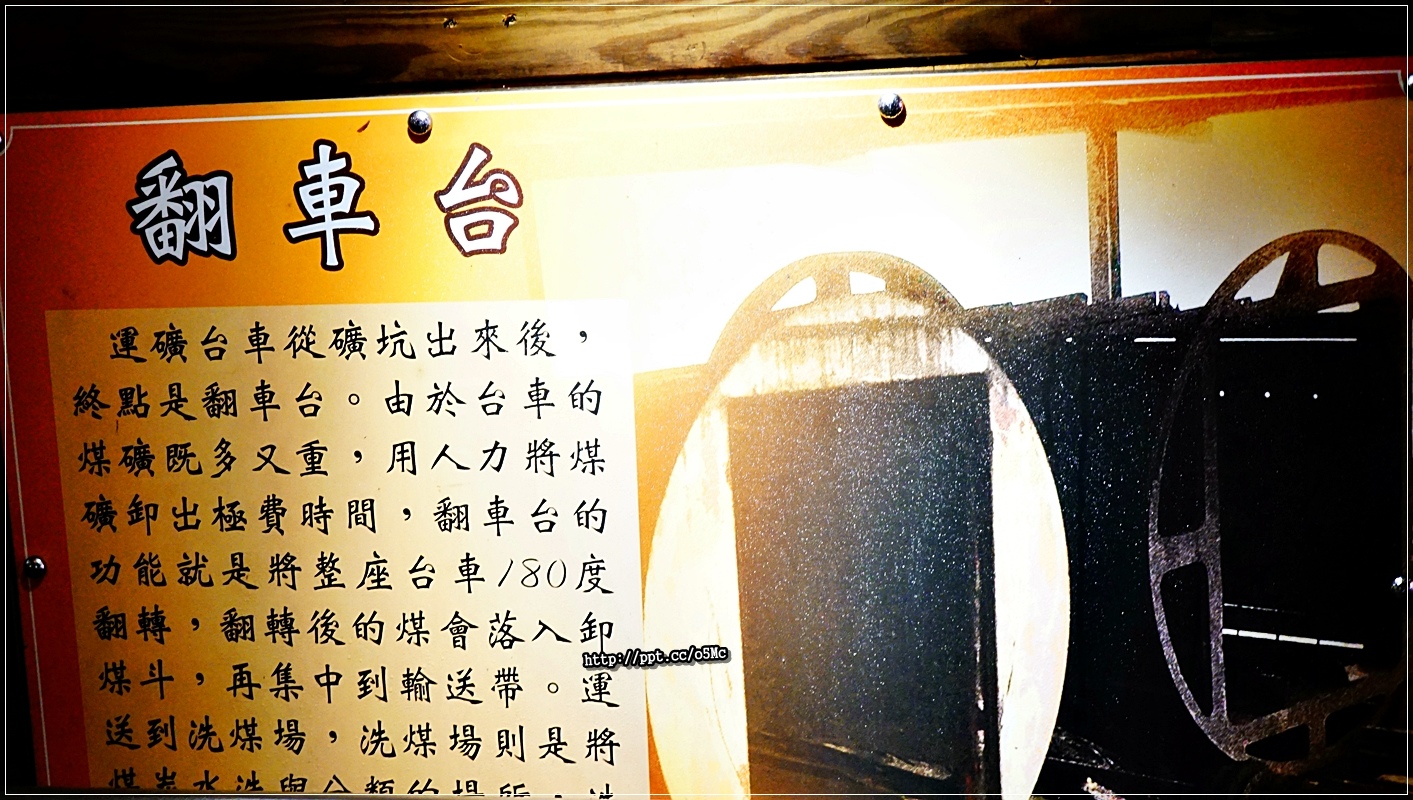 翻車台
運礦台車從礦坑出來後，
終點是翻車台。由於台車的
煤礦既多又重，用人力將煤
礦卸出極費時間，翻車台的
功能就是將整座台車180度
翻轉，翻轉後的煤會落入卸
煤斗，再集中到輸送帶。運
送到洗煤場，洗煤場則是將
煤炭水洗與分類的場所，洗
http://ppt.cc/o5Mc